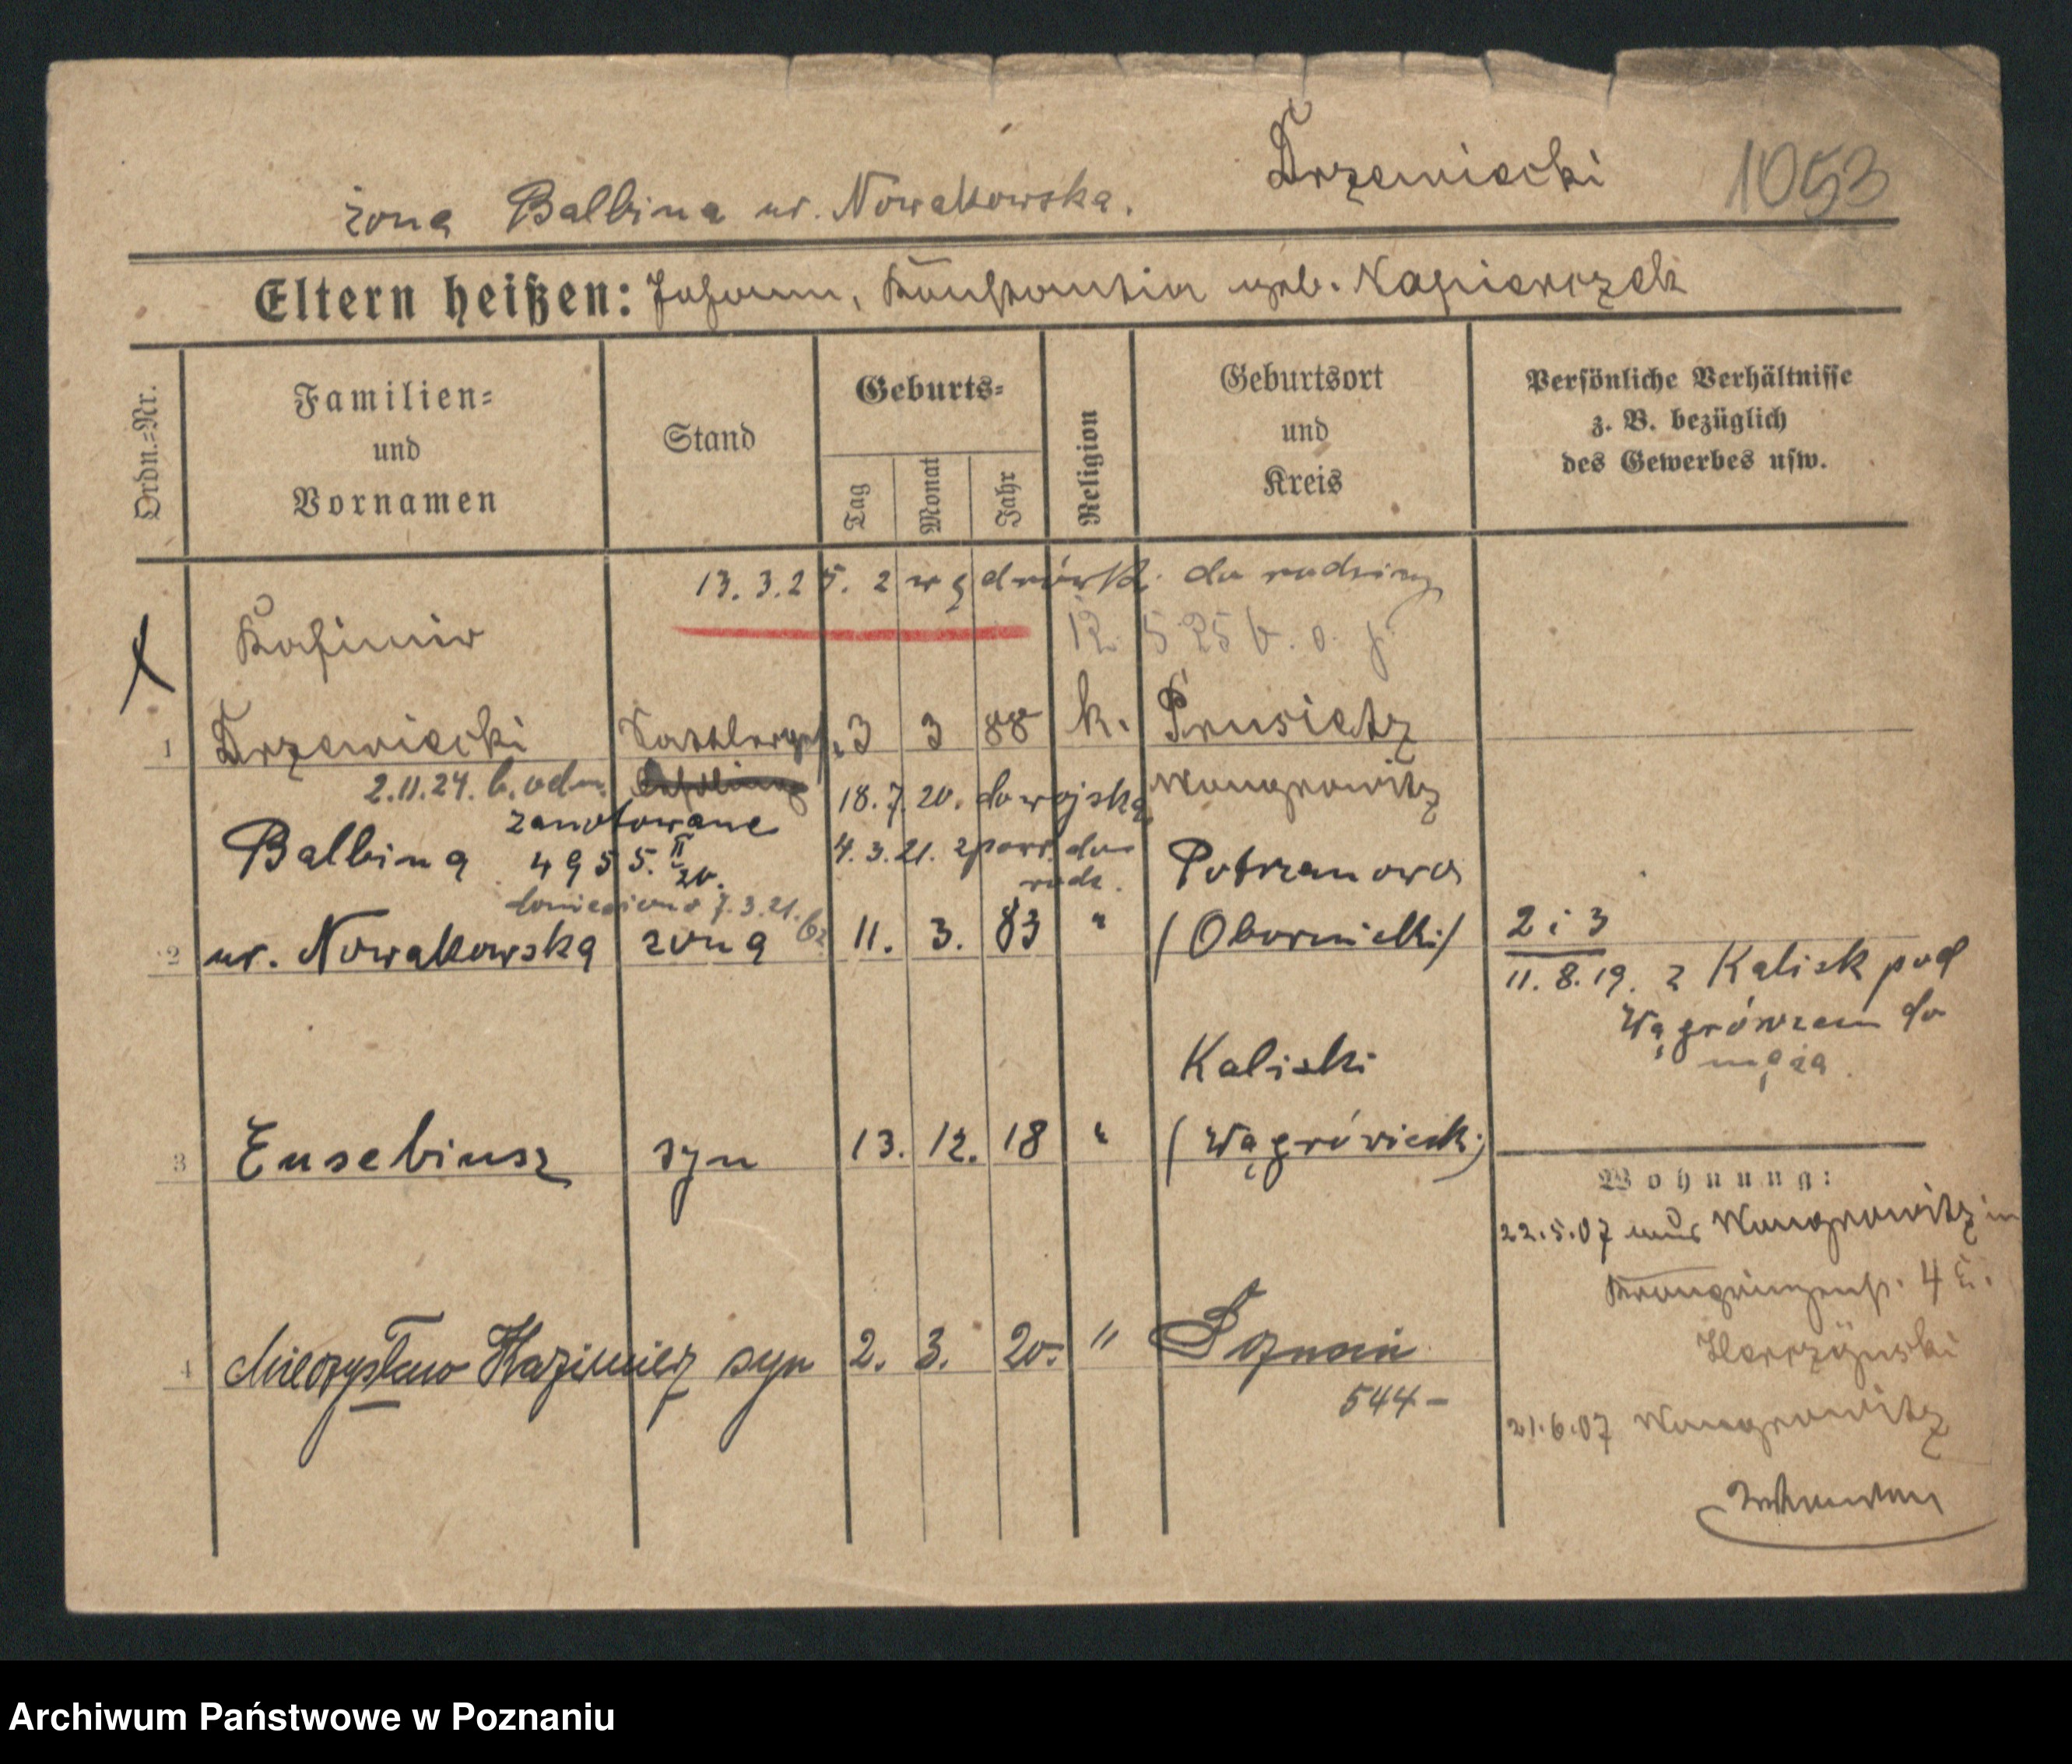 Drzewiecki 1053
żona Balbina ur. Nowakowska.
Eltern heißen: Johann, Konstantin geb. Napierczek
Ordn.=Nr.
Familien=
und
Vornamen
Stand
Geburts=
Tag
Monat
Jahr
Religion
Geburtsort
und
Kreis
Persönliche Verhältnisse
z. B. bezüglich
des Gewerbes usw.
13.3.25. z do rodziny
12 5 25
Kasimir
1 Drzewiecki Sattlerges. 3 3 88 k. Prusietz
2.11.24. 18.7.20. do wojska Wongrowitz
zanotowane
Balbina 4955. II 20. 4.3.21. z pow. do rodz. Potrzanowo
doniesiono 7.3.21.
2 ur. Nowakowska żona 11. 3. 83 " (Obornicki)
2 i 3
11.8.19. z Kalisk pod
Wągrówcem do
męża.
Kaliski
3 Eusebiusz syn 13. 12. 18 " (Wągrówiecki)
Wohnung:
22.5.07 aus Wongrowitz in
Kronprinzenstr. 4 E.
4 Mieczysław Kazimierz syn 2. 3. 20. " Poznań
544-
21.6.07 Wongrowitz
Archiwum Państwowe w Poznaniu